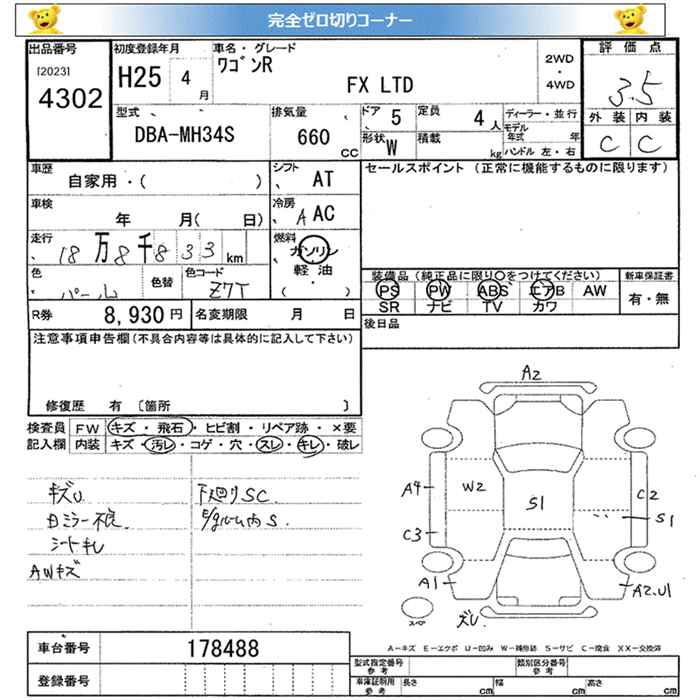 完全ゼロ切りコーナー
出品番号
[2023]
4302
初度登録年月
H25 4 月
車名・グレード
ワゴンR
FX LTD
2WD
・
4WD
評価点
3.5
外装 内装
C C
型式
DBA-MH34S
排気量
660 CC
ドア 5
定員 4 人
形状 W
積載 kg
ディーラー・並行
モデル年式 年
ハンドル 左・右
車歴
自家用・( )
シフト AT
セールスポイント (正常に機能するものに限ります)
車検 年 月( 日)
冷房 A AC
走行 18万8千833 km
燃料 ガソリン
軽油
( )
色 パール
色替
色コード Z7T
装備品 (純正品に限り○をつけてください)
PS PW ABS エアB AW
SR ナビ TV カワ
新車保証書
有・無
R券 8,930 円
名変期限 月 日
後日品
注意事項申告欄(不具合内容等は具体的に記入して下さい)
修復歴 有 [箇所 ]
検査員 FW キズ・飛石・ヒビ割・リペア跡・×要
記入欄 内装 キズ・汚レ・コゲ・穴・スレ・キレ・破レ
キズU
下廻りSC
ミラー不良
E/gルーム内S
シートキレ
AWキズ
A2
A4
W2
S1
C2
S1
C3
A1
A2.U1
スペ
ズU
A―キズ E―エクボ U―凹み W―補修跡 S―サビ C―腐食 XX―交換済
車台番号 178488
登録番号
型式指定番号 参考
類別区分番号 参考
車庫証明用 参考 長さ cm 幅 cm 高さ cm